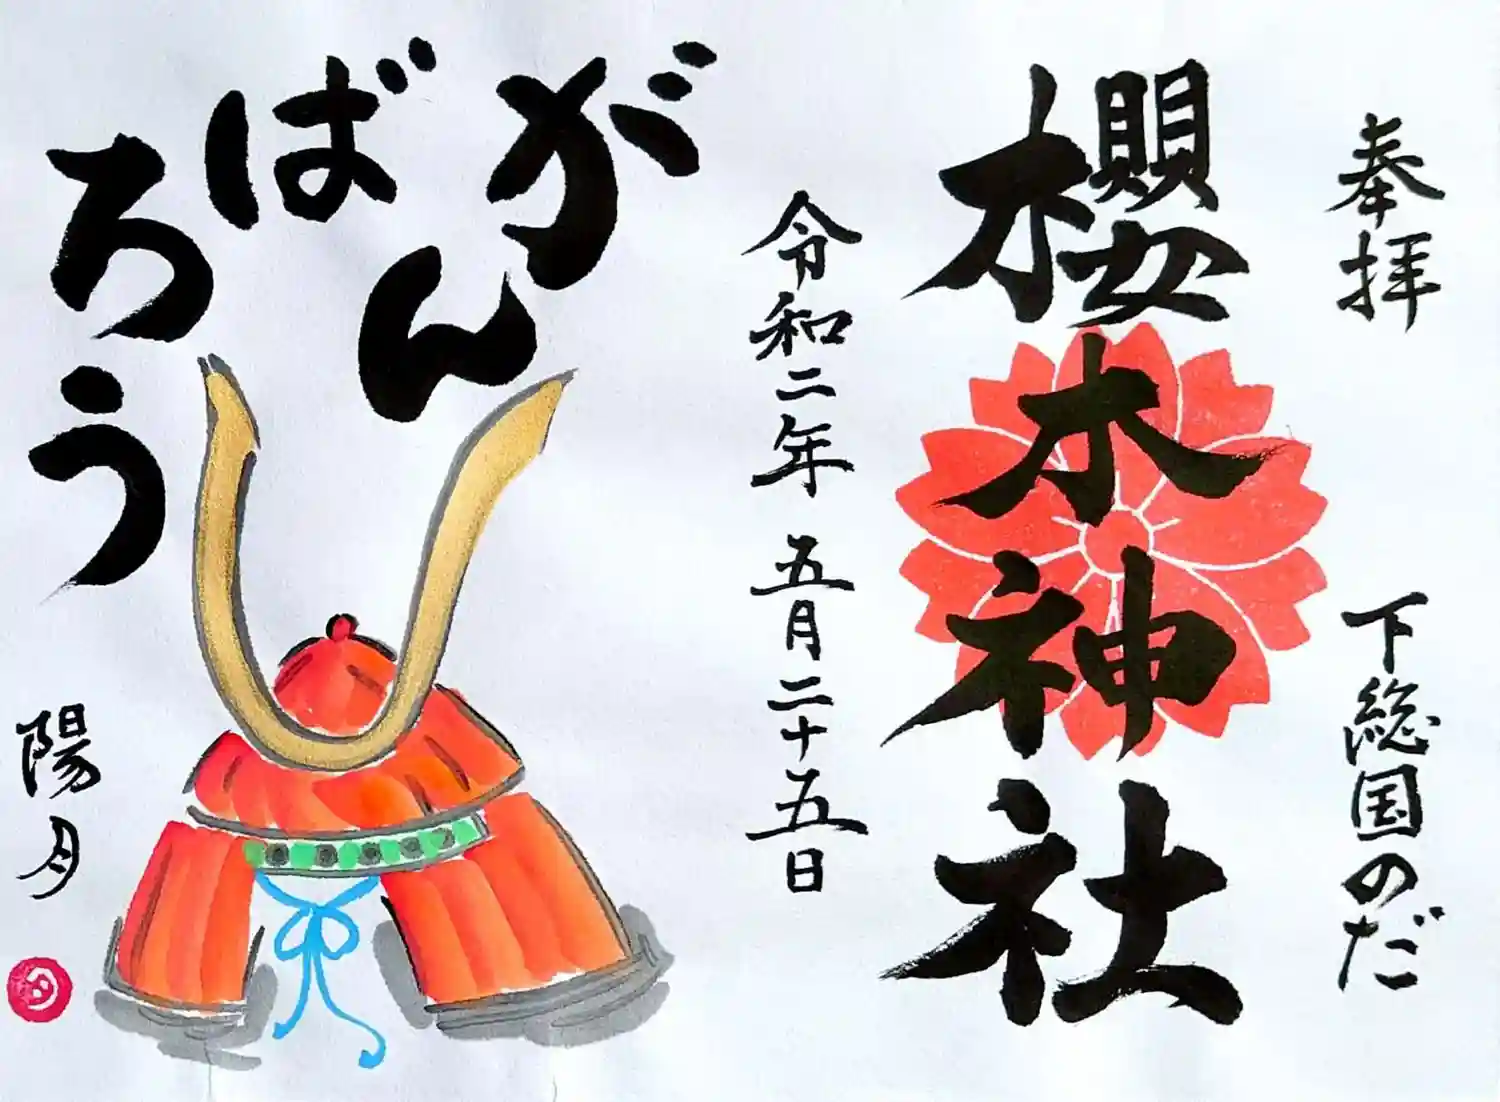 奉拝
下総国のだ
櫻木神社
令和二年 五月二十五日
がんばろう
陽月